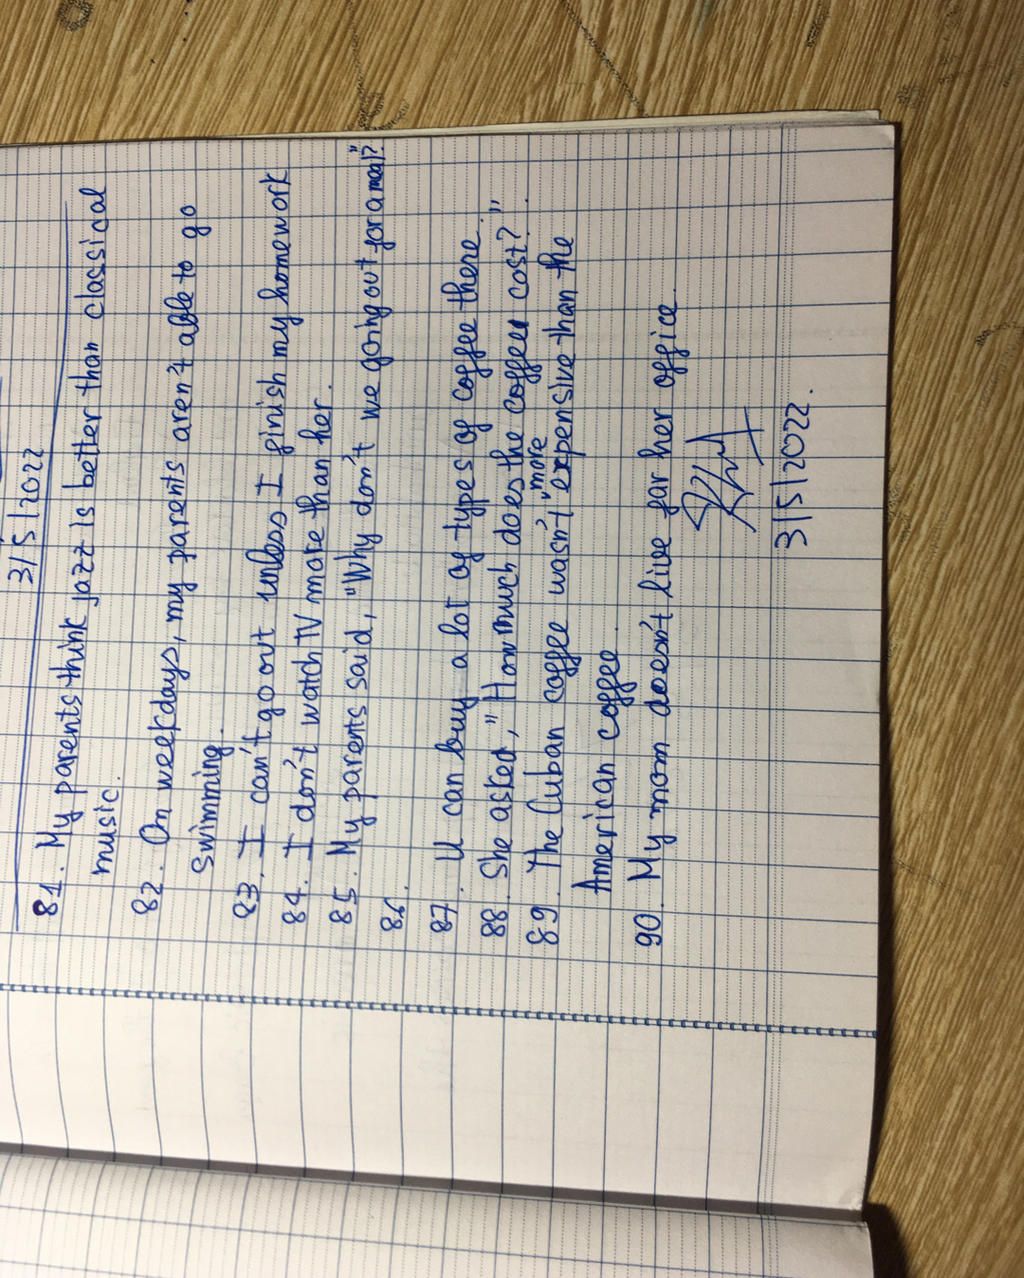 3/5/2022
81. My parents think jazz is better than classical
music.
82. On weekdays, my parents aren't able to go
swimming.
83. I can't go out unless I finish my homework
84. I don't watch TV more than her.
85. My parents said, "Why don't we going out for a meal?"
86.
87. U can buy a lot of types of coffee there.
88. She asked, "How much does the coffee cost?"
89. The Cuban coffee wasn't "more expensive than the
American coffee.
90. My mom doesn't live far her office.
3/5/2022.